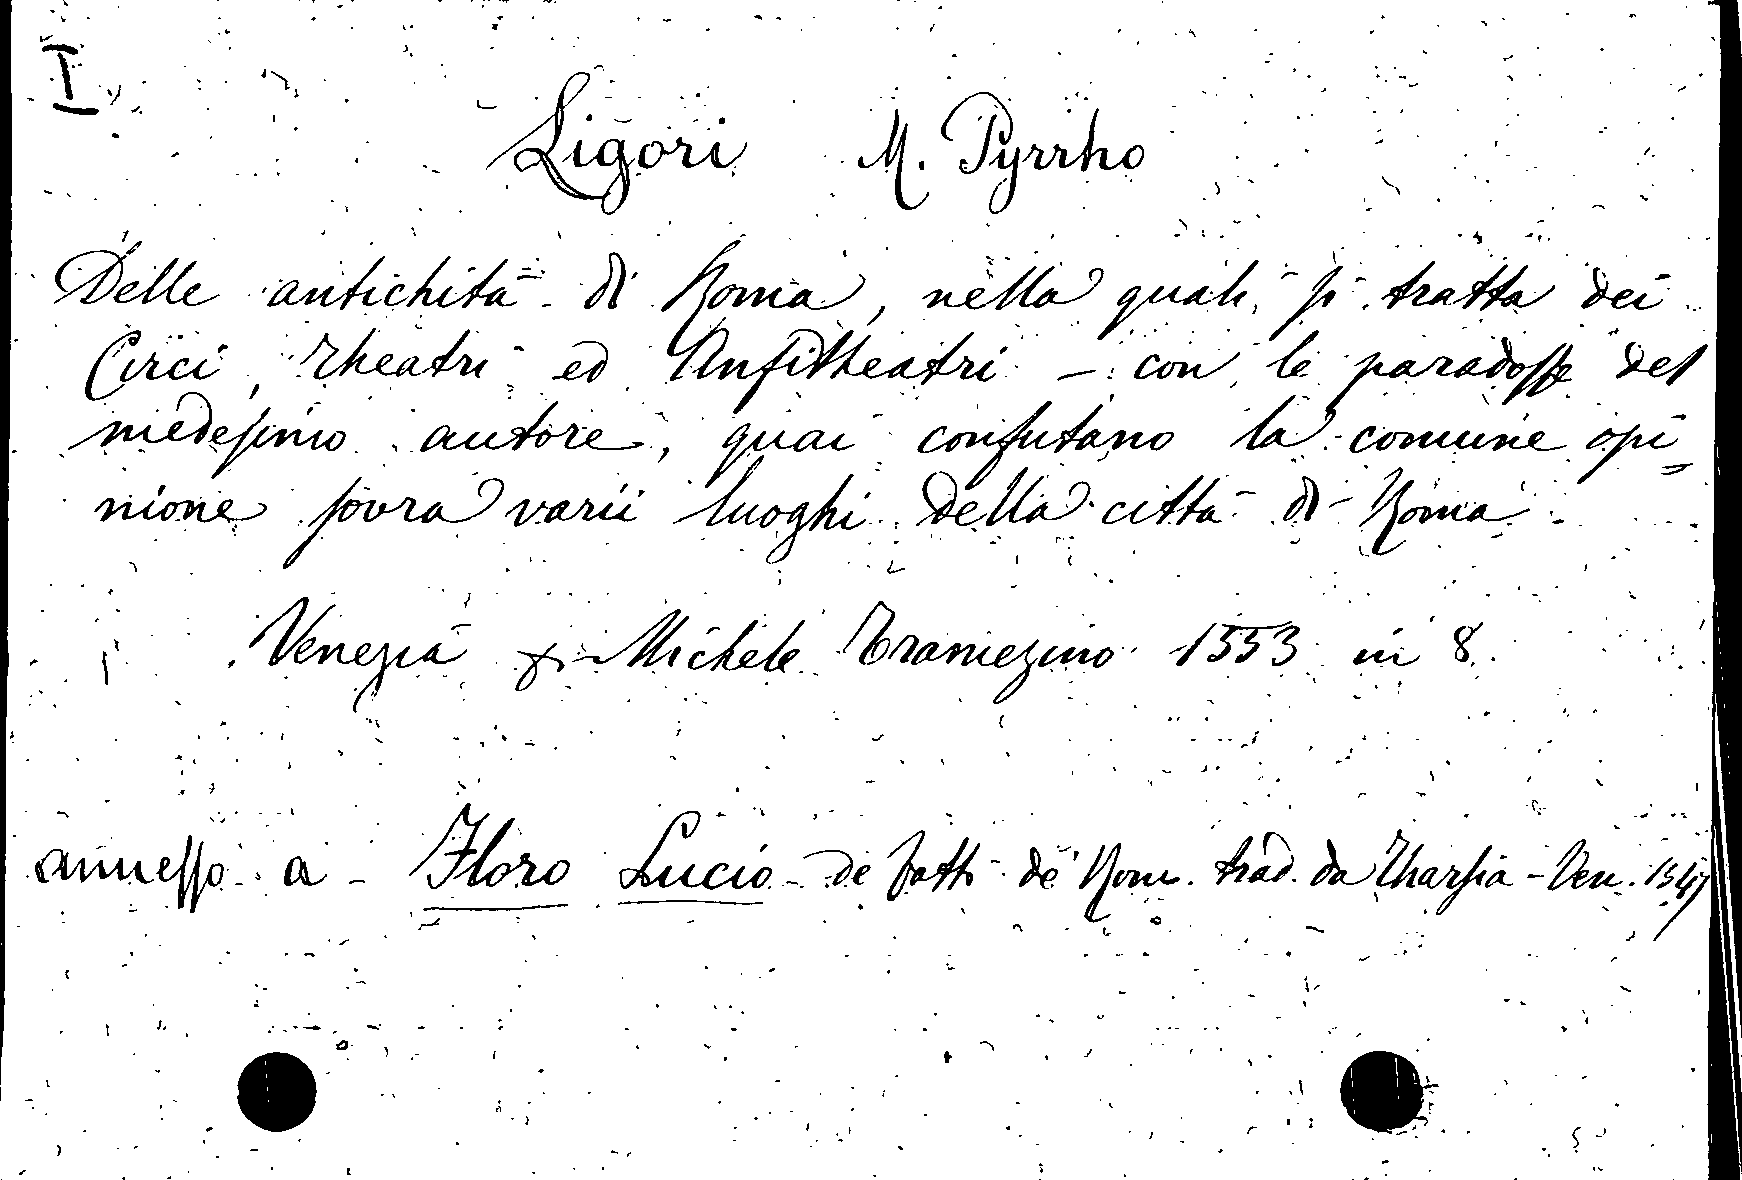 I
Ligori M. Pyrrho
Delle antichità di Roma, nella quali si tratta dei
Circi, Theatri ed Anfitheatri – con le paradosse del
medesimo autore, quai confutano la comune opi=
nione sovra varii luoghi della città di Roma
Venezia p. Michele Tramezino 1553 in 8.
annesso a – Floro Lucio – de fatti de' Rom. trad. da Tharsia – Ven. 1547